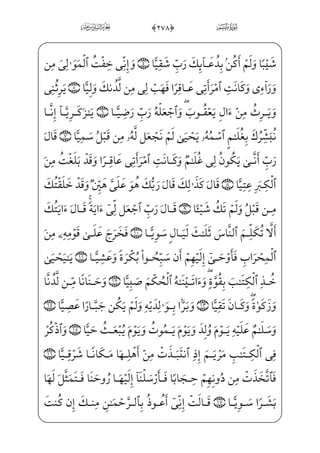 الجزء السادس عشر ﴿٢٧٨﴾ سورة مريم
شَيْبًا وَلَمْ أَكُنۢ بِدُعَآئِكَ رَبِّ شَقِيًّا ۝ وَإِنِّى خِفْتُ ٱلْمَوَٰلِىَ مِن
وَرَآءِى وَكَانَتِ ٱمْرَأَتِى عَاقِرًا فَهَبْ لِى مِن لَّدُنكَ وَلِيًّا ۝ يَرِثُنِى
وَيَرِثُ مِنْ ءَالِ يَعْقُوبَ ۖ وَٱجْعَلْهُ رَبِّ رَضِيًّا ۝ يَٰزَكَرِيَّآ إِنَّا
نُبَشِّرُكَ بِغُلَٰمٍ ٱسْمُهُۥ يَحْيَىٰ لَمْ نَجْعَل لَّهُۥ مِن قَبْلُ سَمِيًّا ۝ قَالَ
رَبِّ أَنَّىٰ يَكُونُ لِى غُلَٰمٌ وَكَانَتِ ٱمْرَأَتِى عَاقِرًا وَقَدْ بَلَغْتُ مِنَ
ٱلْكِبَرِ عِتِيًّا ۝ قَالَ كَذَٰلِكَ قَالَ رَبُّكَ هُوَ عَلَىَّ هَيِّنٌ وَقَدْ خَلَقْتُكَ
مِن قَبْلُ وَلَمْ تَكُ شَيْـًٔا ۝ قَالَ رَبِّ ٱجْعَل لِّىٓ ءَايَةً ۚ قَالَ ءَايَتُكَ
أَلَّا تُكَلِّمَ ٱلنَّاسَ ثَلَٰثَ لَيَالٍ سَوِيًّا ۝ فَخَرَجَ عَلَىٰ قَوْمِهِۦ مِنَ
ٱلْمِحْرَابِ فَأَوْحَىٰٓ إِلَيْهِمْ أَن سَبِّحُوا۟ بُكْرَةً وَعَشِيًّا ۝ يَٰيَحْيَىٰ
خُذِ ٱلْكِتَٰبَ بِقُوَّةٍ ۖ وَءَاتَيْنَٰهُ ٱلْحُكْمَ صَبِيًّا ۝ وَحَنَانًا مِّن لَّدُنَّا
وَزَكَوٰةً ۖ وَكَانَ تَقِيًّا ۝ وَبَرًّۢا بِوَٰلِدَيْهِ وَلَمْ يَكُن جَبَّارًا عَصِيًّا ۝
وَسَلَٰمٌ عَلَيْهِ يَوْمَ وُلِدَ وَيَوْمَ يَمُوتُ وَيَوْمَ يُبْعَثُ حَيًّا ۝ وَٱذْكُرْ
فِى ٱلْكِتَٰبِ مَرْيَمَ إِذِ ٱنتَبَذَتْ مِنْ أَهْلِهَا مَكَانًا شَرْقِيًّا ۝
فَٱتَّخَذَتْ مِن دُونِهِمْ حِجَابًا فَأَرْسَلْنَآ إِلَيْهَا رُوحَنَا فَتَمَثَّلَ لَهَا
بَشَرًا سَوِيًّا ۝ قَالَتْ إِنِّىٓ أَعُوذُ بِٱلرَّحْمَٰنِ مِنكَ إِن كُنتَ